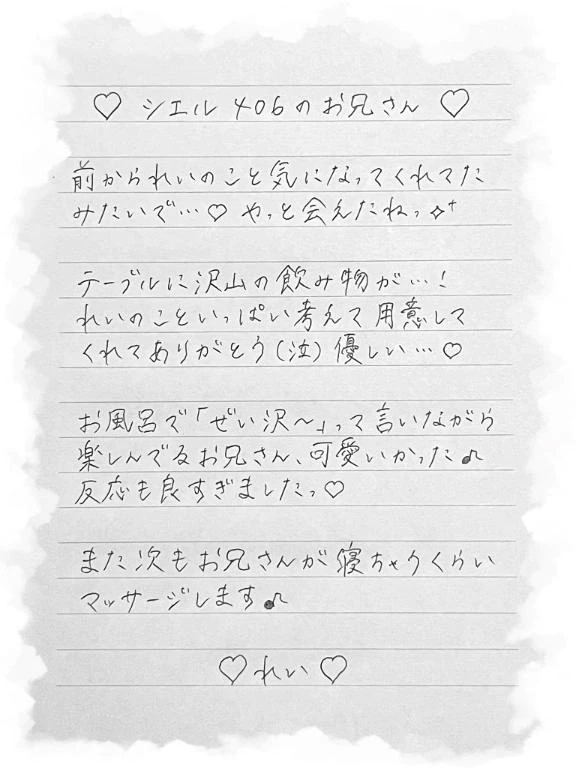 ♡ シエル 406のお兄さん ♡
前かられいのこと気になってくれてた
みたいで…♡ やっと会えたねっ✧⁺
テーブルに沢山の飲み物が…!
れいのこといっぱい考えて用意して
くれてありがとう(泣)優しい…♡
お風呂で「ぜい沢〜」って言いながら
楽しんでるお兄さん、可愛いかった♪
反応も良すぎましたっ♡
また次もお兄さんが寝ちゃうくらい
マッサージします♪
♡ れい ♡